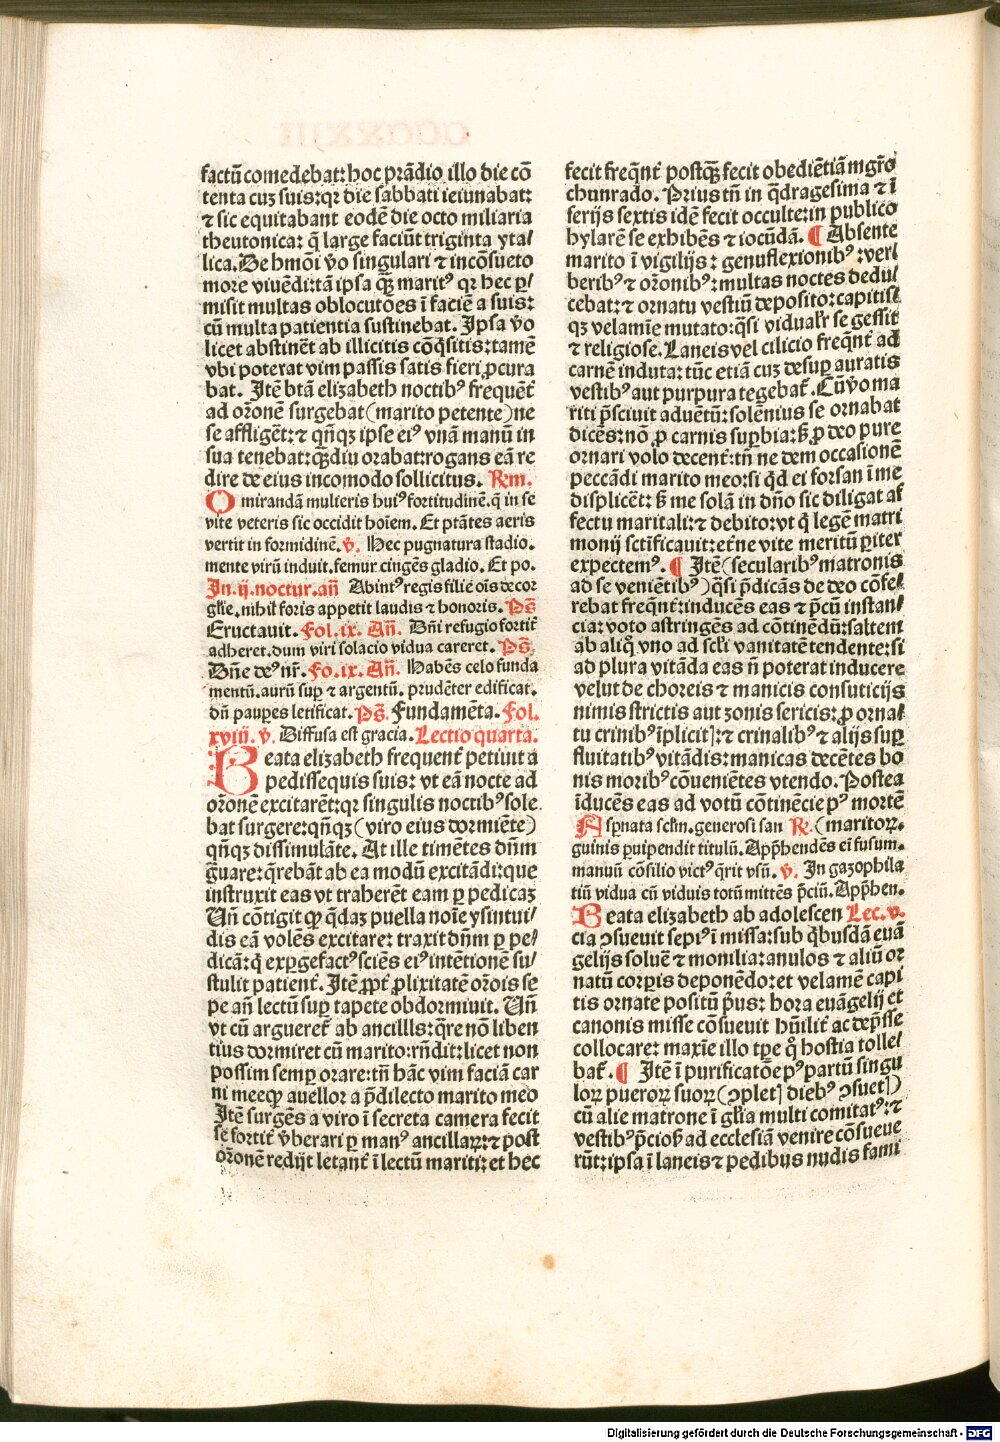 factū comedebat: hoc prādio illo die cō
tenta cuz suis: qꝛ die sabbati ieiunabat:
⁊ sic equitabant eodē die octo miliaria
theutonica: q̄ large faciūt triginta yta/
lica. De hmōi v̄o singulari ⁊ incōsueto
more viuēdi: tā ipsa qꝫ̄ maritꝰ qꝛ hec ꝑ/
misit multas oblocutōes ī faciē a suis:
cū multa patientia sustinebat. Ipsa v̄o
licet abstinēt ab illicitis cōq̄sitis: tamē
vbi poterat vim passis satis fieri ꝓcura
bat. Itē btā elizabeth noctibꝰ frequēt̄
ad oꝛ̄onē surgebat (marito petente) ne
se affligēt: ⁊ qn̄qꝫ ipse eiꝰ vnā manū in
sua tenebat: qꝫ̄diu orabat: rogans eā re
dire de eius incomodo sollicitus. R̄m.
O mirandā mulieris huiꝰ fortitudinē. q̄ in se
vite veteris sic occidit hoīem. Et ptātes aeris
vertit in formidinē. v̄. Hec pugnatura stadio.
mente virū induit. femur cingēs gladio. Et po.
In .ij. noctur. an̄ Abintꝰ regis filie oīs decor
gl̄ie. nihil foris appetit laudis ⁊ honoris. Ps̄
Eructauit. Fol. ix. An̄. Dn̄i refugio fortit̄
adheret. dum viri solacio vidua careret. Ps̄
Dn̄e deꝰ nr̄. Fo. ix. An̄. Habēs celo funda
mentū. aurū suꝑ ⁊ argentū. prudēter edificat.
dn̄ pauꝑes letificat. Ps̄. Fundamēta. Fol.
xviij. v̄. Diffusa est gracia. Lectio quarta.
Beata elizabeth frequent̄ petiuit a
pedissequis suis: vt eā nocte ad
oꝛ̄onē excitarēt: qꝛ singulis noctibꝰ sole
bat surgere: qn̄qꝫ (viro eius dormiēte)
qn̄qꝫ dissimulāte. At ille timētes dn̄m
ḡuare: q̄rebāt ab ea modū excitādi: que
instruxit eas vt traherēt eam ꝑ pedicaꝫ
Vn̄ cōtigit ꝙ q̄daꝫ puella noīe ysintui/
dis eā volēs excitare: traxit dn̄m ꝑ pe/
dicā: q̄ exꝑgefactꝰ sciēs eiꝰ intētionē su/
stulit patient̄. Itē ꝓpt̄ ꝓlixitatē oꝛ̄ois se
pe an̄ lectū suꝑ tapete obdormiuit. Vn̄
vt cū argueret̄ ab ancillls: q̄re nō liben
tius dormiret cū marito: rn̄dit: licet non
possim semꝑ orare: tn̄ hāc vim faciā car
ni meeqꝫ auellor a p̄dilecto marito meo
Itē surgēs a viro ī secreta camera fecit
se fortit̄ v̄berari ꝑ manꝰ ancillaꝝ: ⁊ post
oꝛ̄onē redijt letant̄ ī lectū mariti: et hec
fecit freq̄nt̄ postqꝫ̄ fecit obediētiā mgr̄o
chunrado. Prius tn̄ in q̄dragesima ⁊ ī
ferijs sextis idē fecit occulte: in publico
hylarē se exhibēs ⁊ iocūdā. ¶ Absente
marito ī vigilijs: genuflexionibꝰ: ver/
beribꝰ ⁊ oꝛ̄onibꝰ: multas noctes dedu/
cebat: ⁊ ornatu vestiū deposito: capitisꝫ
qꝫ velamīe mutato: q̄si vidualr̄ se gessit
⁊ religiose. Laneis vel cilicio freq̄nt̄ ad
carnē induta: tūc etiā cuz desuꝑ auratis
vestibꝰ aut purpura tegebat̄. Cū v̄o ma
riti p̄sciuit aduētū: solēnius se ornabat
dicēs: nō ꝓ carnis suꝑbia: sꝫ ꝓ deo pure
ornari volo decent̄: tn̄ ne dem occasionē
peccādi marito meo: si q̄d ei forsan ī me
displicēt: sꝫ me solā in dn̄o sic diligat af
fectu maritali: ⁊ debito: vt q̄ legē matri
monij sct̄ificauit: et̄ne vite meritū ꝑiter
expectemꝰ. ¶ Itē (secularibꝰ matronis
ad se veniētibꝰ) q̄si p̄dicās de deo cōfe/
rebat freq̄nt̄: inducēs eas ⁊ p̄cū instan/
cia: voto astringēs ad cōtinēdū: saltem
ab aliq̄ vno ad scl̄i vanitatē tendente: si
ad plura vitāda eas n̄ poterat inducere
velut de choreis ⁊ manicis consuticijs
nimis strictis aut zonis sericis: ꝓ orna/
tu crinibꝰ īplicit]: ⁊ crinalibꝰ ⁊ alijs suꝑ
fluitatibꝰ vitādis: manicas decētes bo
nis moribꝰ cōuenientes vtendo. Postea
īducēs eas ad votū cōtinēcie pꝰ mortē
Aspnata scl̄m. generosi san R̄. (maritoꝝ.
guinis ꝑuipendit titulū. App̄hendēs ei fusum.
manuū cōsilio victꝰ q̄rit vsū. v̄. In gazophila
tiū vidua cū viduis totū mittēs p̄ciū. App̄hen.
Beata elizabeth ab adolescen Lec. v.
cia ↄsueuit sepiꝰ ī missa: sub q̄busdā euā
gelijs soluē ⁊ monilia: anulos ⁊ aliū or
natū corꝑis deponēdo: et velamē capi
tis ornate positū p̄us: hora euāgelij et
canonis misse cōsueuit hūilit̄ ac dep̄sse
collocare: maxīe illo tꝑe q̊ hostia tolle/
bat̄. ¶ Itē ī purificatōe pꝰ partū singu
loꝝ pueroꝝ suoꝝ (ↄplet] diebꝰ ↄsuet])
cū alie matrone ī gl̄ia multi comitatꝰ: ⁊
vestibꝰ p̄ciosꝭ ad ecclesiā venire cōsueue
rūt: ipsa ī laneis ⁊ pedibus nudis fami
Digitalisierung gefördert durch die Deutsche Forschungsgemeinschaft - DFG